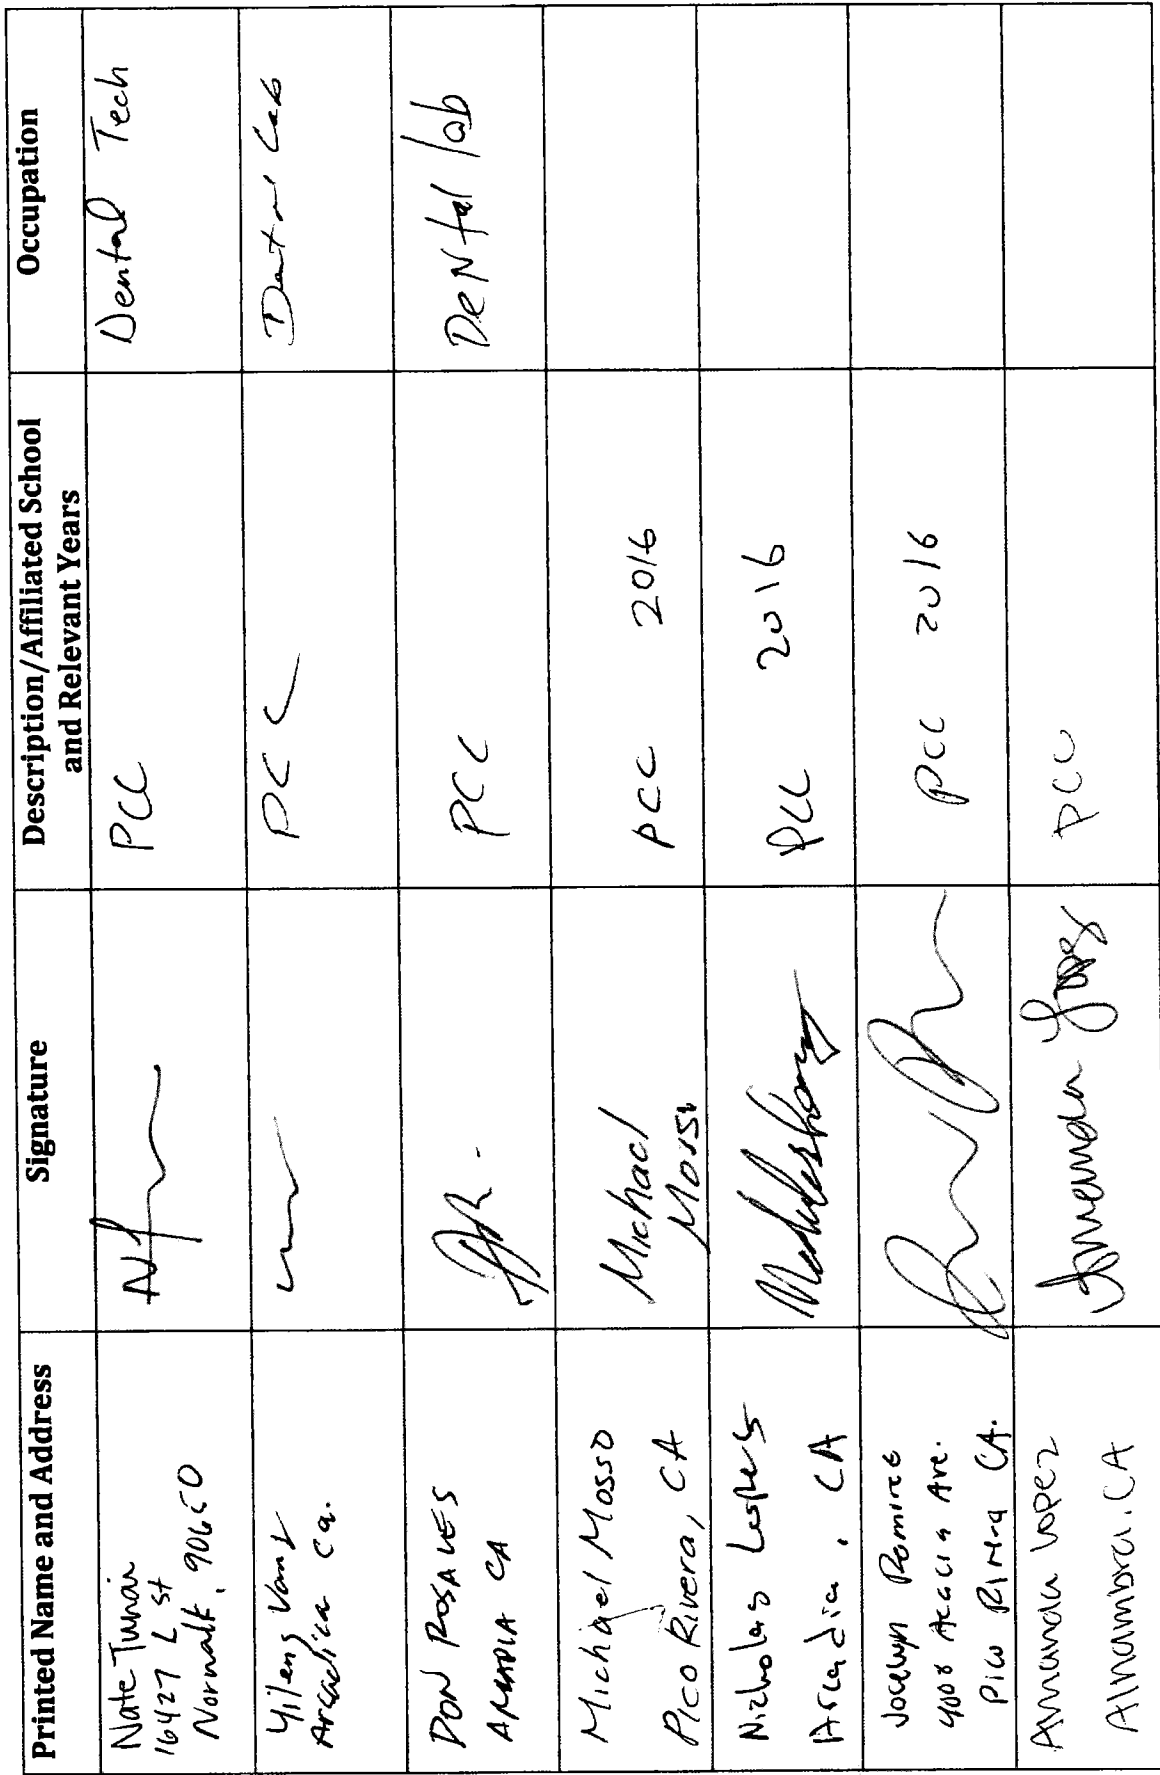 Printed Name and Address
Signature
Description/Affiliated School
and Relevant Years
Occupation
Nate
16427 L St
Norwalk, 90650
PCC
Dental Tech
Yileng
Arcadia ca.
PCC
Dental Lab
DON ROSALES
CA
PCC
DeNtal lab
Michael Mosso
Pico Rivera, CA
Michael
PCC 2016
Nicholas
Arcadia, CA
PCC 2016
Jocelyn
Acacia Ave.
Pico Rivera CA.
PCC 2016
Amanda Lopez
Alhambra, CA
Amanda Lopez
PCC